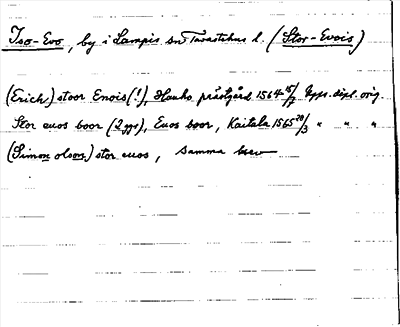 Iso-Evo, by i Lampis sn Tavastehus l. (Stor-Evois)
(Erich) stoor Enois (!), Hauho prästgård 1564 15/7 Upps. dipl. orig.
Stor euos boor (2 ggr), Euos boor, Kaitala 1565 20/3 " " "
(Simon olson) stor euos, samma brev